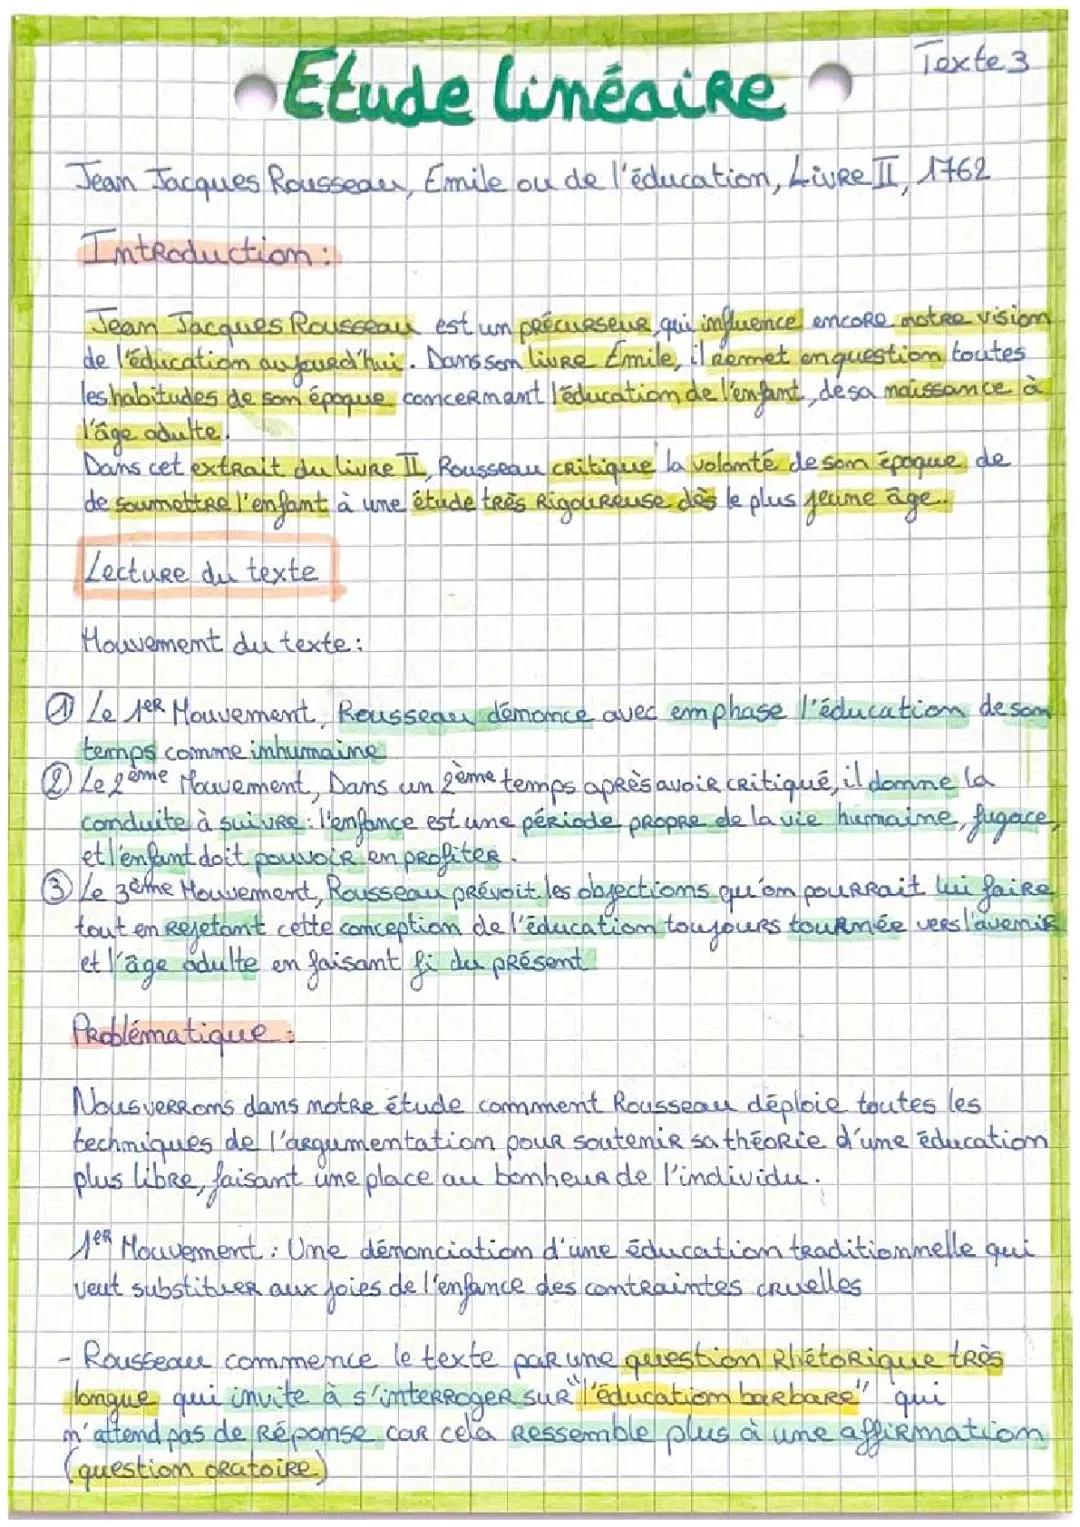 Texte 3
Etude linéaire
Jean Jacques Rousseau, Emile ou de l'éducation, Livre II, 1762
Introduction :
Jean Jacques Rousseau est un précurseur, qui influence encore notre vision
de l'éducation aujourd'hui. Dans son livre Emile, il remet en question toutes
les habitudes de son époque concernant l'éducation de l'enfant, de sa naissance à
l'âge adulte.
Dans cet extrait du livre II, Rousseau critique la volonté de son époque de
de soumettre l'enfant à une étude très rigoureuse dès le plus jeune âge..
Lecture du texte
Mouvement du texte :
① Le 1er Mouvement, Rousseau dénonce avec emphase l'éducation de son
temps comme inhumaine
② Le 2ème Mouvement, Dans un 2ème temps après avoir critiqué, il donne la
conduite à suivre : l'enfance est une période propre de la vie humaine, fugace,
et l'enfant doit pouvoir en profiter.
③ Le 3ème Mouvement, Rousseau prévoit les objections qu'on pourrait lui faire
tout en rejetant cette conception de l'éducation toujours tournée vers l'avenir
et l'âge adulte en faisant fi du présent
Problématique :
Nous verrons dans notre étude comment Rousseau déploie toutes les
techniques de l'argumentation pour soutenir sa théorie d'une éducation
plus libre, faisant une place au bonheur de l'individu.
1er Mouvement : Une dénonciation d'une éducation traditionnelle qui
veut substituer aux joies de l'enfance des contraintes cruelles
- Rousseau commence le texte par une question Rhétorique très
longue qui invite à s'interroger sur "l'éducation barbare" qui
n'attend pas de réponse car cela ressemble plus à une affirmation
(question oratoire)